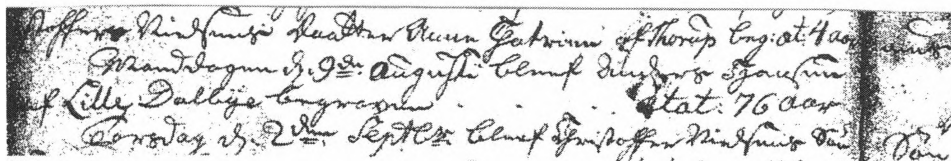 stoffer Nielsens Daatter Anne Catrine af Thorup beg: æt: 4 aar
Mandagen d. 9de Augusti bleef Anders Hansen
af Lille Dalbye begraven . . . Ætat. 76 aar
Torsdag d. 2den Septbr. bleef Christoffer Nielsens Søn